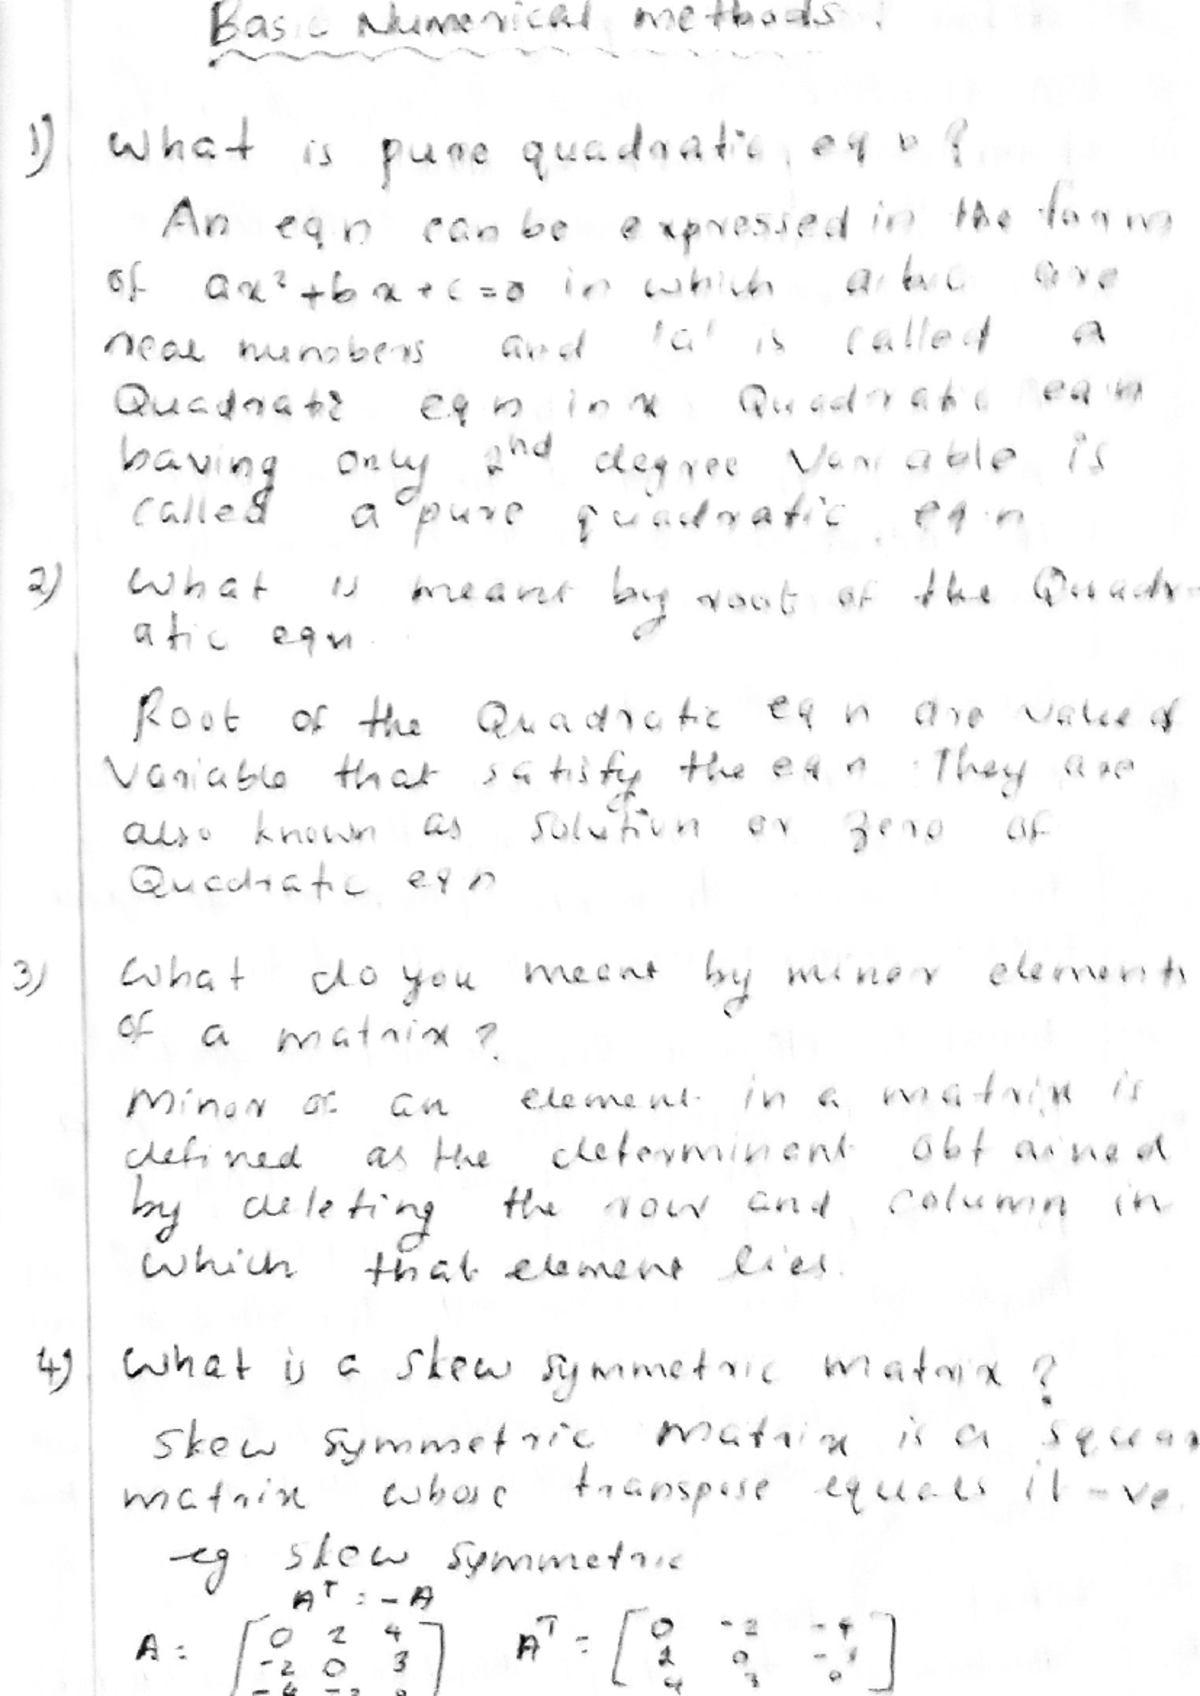 Basic Numerical methods.
1) What is pure quadratic eqn?
An eqn can be expressed in the form
of ax²+bx+c=0 in which a,b,c are
real numbers and 'a' is called a
Quadratic eqn in x. Quadratic eqn
having only 2nd degree variable is
called a pure quadratic eqn
2) What is meant by root of the Quadr-
atic eqn.
Root of the Quadratic eqn are value of
Variable that satisfy the eqn. They are
also known as solution or zero of
Quadratic eqn
3) What do you meant by minor elements
of a matrix?
Minor of an element in a matrix is
defined as the determinant obtained
by deleting the row and column in
which that element lies.
4) What is a skew symmetric matrix?
Skew symmetric matrix is a squar
matrix whose transpose equals it -ve.
eg skew symmetric
Aᵀ = -A
A = [0 2 4 Aᵀ = [0 -2 -4
-2 0 3] 2 0 -3
-4 -3 0 4 3 0]